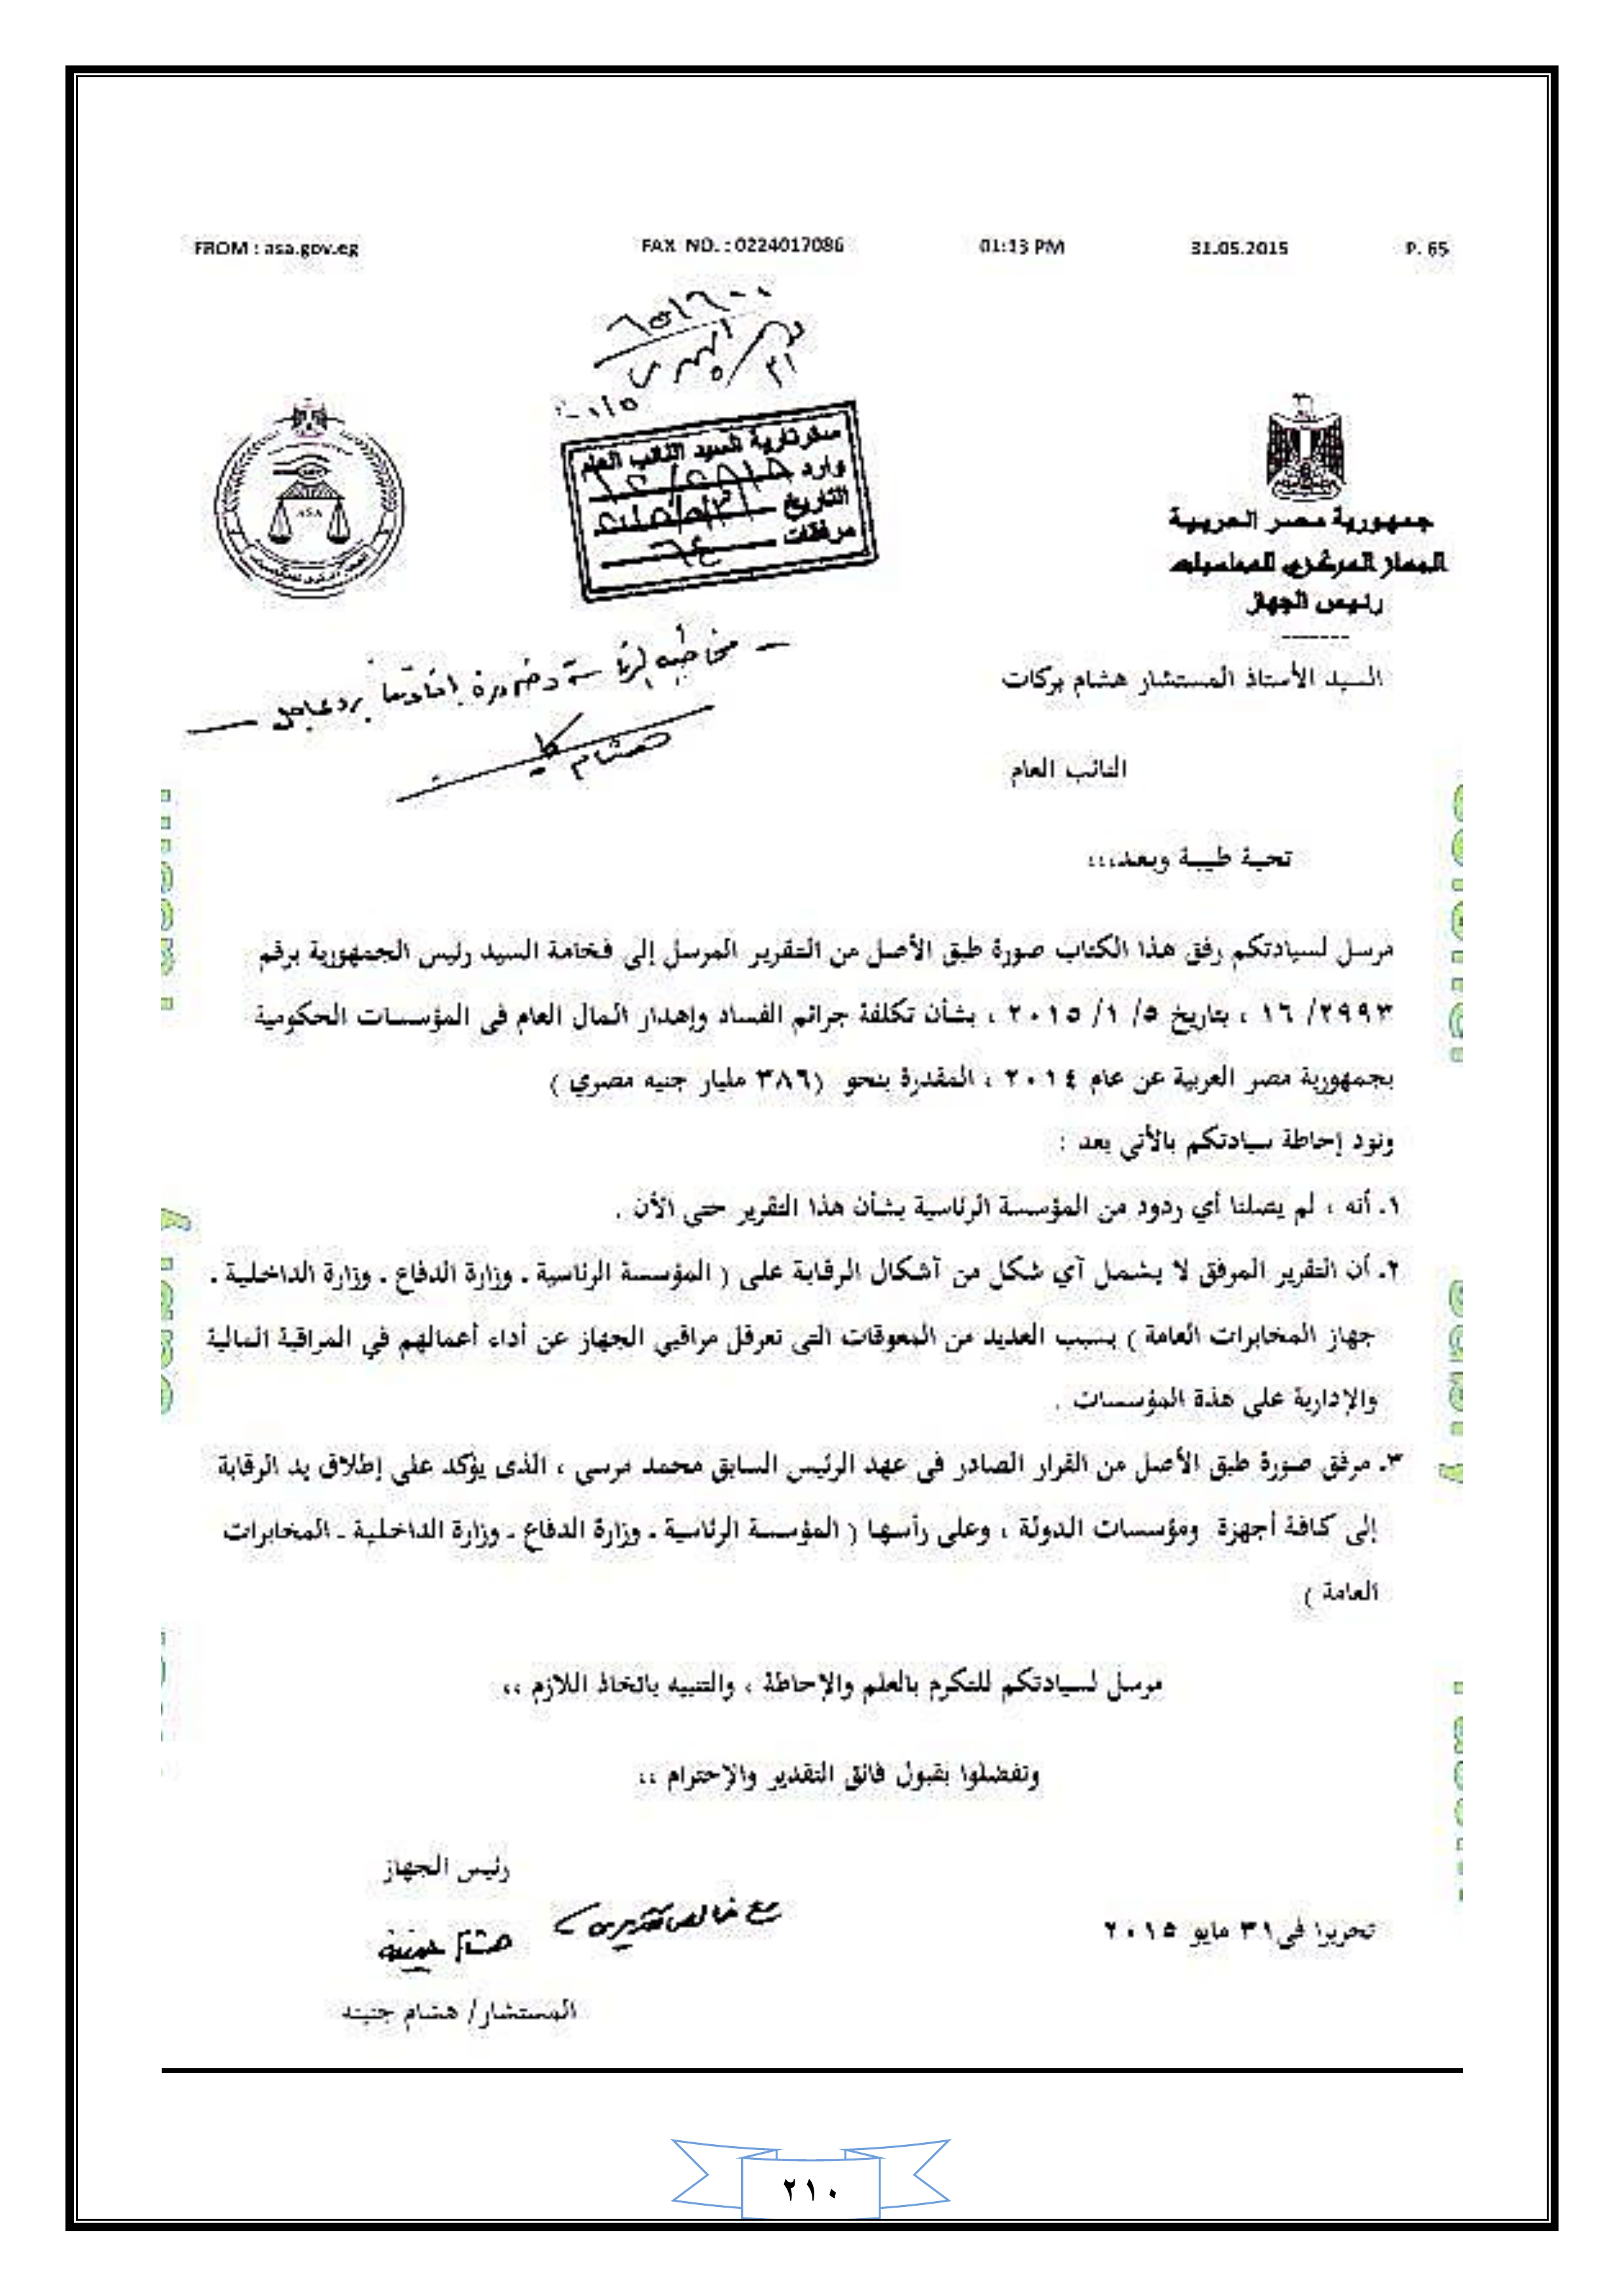 FROM : asa.gov.eg FAX NO. : 0224017086 01:13 PM 31.05.2015 P. 65
سكرتارية السيد النائب العام
وارد
التاريخ
مرفقات ٦٤
ASA
جمهورية مصر العربية
الجهاز المركزي للمحاسبات
رئيس الجهاز
السيد الأستاذ المستشار هشام بركات
النائب العام
تحية طيبة وبعد،،،
مرسل لسيادتكم رفق هذا الكتاب صورة طبق الأصل من التقرير المرسل إلى فخامة السيد رئيس الجمهورية برقم
٢٩٩٣/ ١٦ ، بتاريخ ٥/ ١/ ٢٠١٥ ، بشأن تكلفة جرائم الفساد وإهدار المال العام فى المؤسسات الحكومية
بجمهورية مصر العربية عن عام ٢٠١٤ ، المقدرة بنحو (٣٨٦ مليار جنيه مصري )
ونود إحاطة سيادتكم بالأتى بعد :
١. أنه ، لم يصلنا أي ردود من المؤسسة الرئاسية بشأن هذا التقرير حتى الأن .
٢. أن التقرير المرفق لا يشمل آي شكل من آشكال الرقابة على ( المؤسسة الرئاسية . وزارة الدفاع . وزارة الداخلية .
جهاز المخابرات العامة ) بسبب العديد من المعوقات التى تعرقل مراقبي الجهاز عن أداء أعمالهم في المراقبة المالية
والإدارية على هذة المؤسسات .
٣. مرفق صورة طبق الأصل من القرار الصادر فى عهد الرئيس السابق محمد مرسي ، الذى يؤكد على إطلاق يد الرقابة
إلى كافة أجهزة ومؤسسات الدولة ، وعلى رأسها ( المؤسسة الرئاسية . وزارة الدفاع . وزارة الداخلية . المخابرات
العامة )
مرسل لسيادتكم للتكرم بالعلم والإحاطة ، والتنبيه باتخاذ اللازم ،،
وتفضلوا بقبول فائق التقدير والإحترام ،،
رئيس الجهاز
هشام جنينة
تحريرا فى ٣١ مايو ٢٠١٥
المستشار/ هشام جنينه
٢١٠